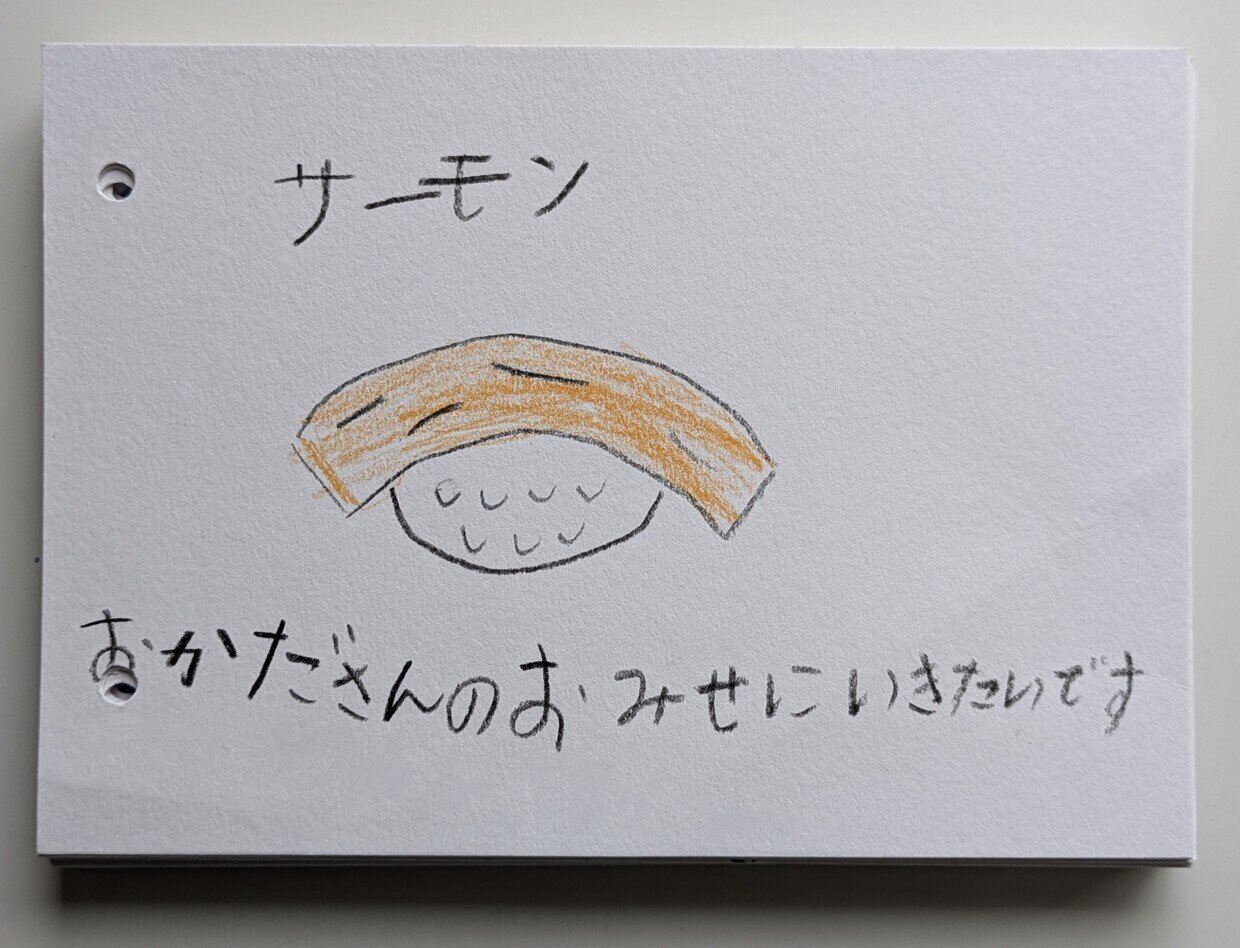 サーモン
おかださんのおみせにいきたいです